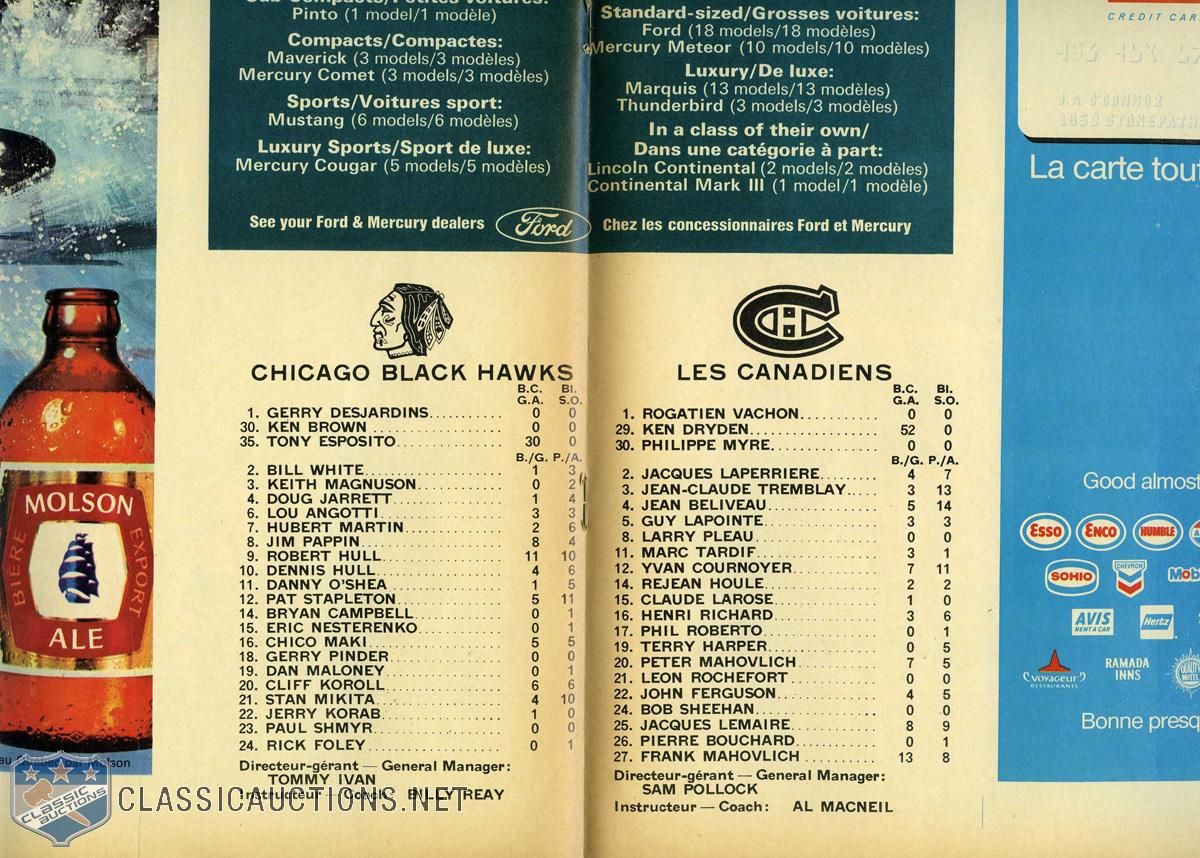 Pinto (1 model/1 modèle)
Compacts/Compactes:
Maverick (3 models/3 modèles)
Mercury Comet (3 models/3 modèles)
Sports/Voitures sport:
Mustang (6 models/6 modèles)
Luxury Sports/Sport de luxe:
Mercury Cougar (5 models/5 modèles)
See your Ford & Mercury dealers
Ford
Standard-sized/Grosses voitures:
Ford (18 models/18 modèles)
Mercury Meteor (10 models/10 modèles)
Luxury/De luxe:
Marquis (13 models/13 modèles)
Thunderbird (3 models/3 modèles)
In a class of their own/
Dans une catégorie à part:
Lincoln Continental (2 models/2 modèles)
Continental Mark III (1 model/1 modèle)
Chez les concessionnaires Ford et Mercury
CHICAGO BLACK HAWKS
B.C. BI.
G.A. S.O.
1. GERRY DESJARDINS 0 0
30. KEN BROWN 0 0
35. TONY ESPOSITO 30 0
B./G. P./A.
2. BILL WHITE 1 3
3. KEITH MAGNUSON 0 2
4. DOUG JARRETT 1 4
6. LOU ANGOTTI 3 3
7. HUBERT MARTIN 2 6
8. JIM PAPPIN 8 4
9. ROBERT HULL 11 10
10. DENNIS HULL 4 6
11. DANNY O'SHEA 1 5
12. PAT STAPLETON 5 11
14. BRYAN CAMPBELL 0 1
15. ERIC NESTERENKO 0 1
16. CHICO MAKI 5 5
18. GERRY PINDER 0 0
19. DAN MALONEY 0 1
20. CLIFF KOROLL 6 6
21. STAN MIKITA 4 10
22. JERRY KORAB 1 0
23. PAUL SHMYR 0 0
24. RICK FOLEY 0 1
Directeur-gérant — General Manager:
TOMMY IVAN
Instructeur — Coach: BILLY REAY
LES CANADIENS
B.C. BI.
G.A. S.O.
1. ROGATIEN VACHON 0 0
29. KEN DRYDEN 52 0
30. PHILIPPE MYRE 0 0
B./G. P./A.
2. JACQUES LAPERRIERE 4 7
3. JEAN-CLAUDE TREMBLAY 3 13
4. JEAN BELIVEAU 5 14
5. GUY LAPOINTE 3 3
8. LARRY PLEAU 0 0
11. MARC TARDIF 3 1
12. YVAN COURNOYER 7 11
14. REJEAN HOULE 2 2
15. CLAUDE LAROSE 1 0
16. HENRI RICHARD 3 6
17. PHIL ROBERTO 0 1
19. TERRY HARPER 0 5
20. PETER MAHOVLICH 7 5
21. LEON ROCHEFORT 0 0
22. JOHN FERGUSON 4 5
24. BOB SHEEHAN 0 0
25. JACQUES LEMAIRE 8 9
26. PIERRE BOUCHARD 0 1
27. FRANK MAHOVLICH 13 8
Directeur-gérant — General Manager:
SAM POLLOCK
Instructeur — Coach: AL MACNEIL
MOLSON
BIÈRE
EXPORT
ALE
Molson
CLASSIC AUCTIONS
CLASSICAUCTIONS.NET
CREDIT CAR
J.A. O'CONNOR
1850 STONEPATH
La carte tout
Good almost
Esso
ENCO
HUMBLE
SOHIO
CHEVRON
Mob
AVIS
RENT A CAR
Hertz
Voyageur
RESTAURANTS
RAMADA
INNS
QUALITY
MOTEL
Bonne presq